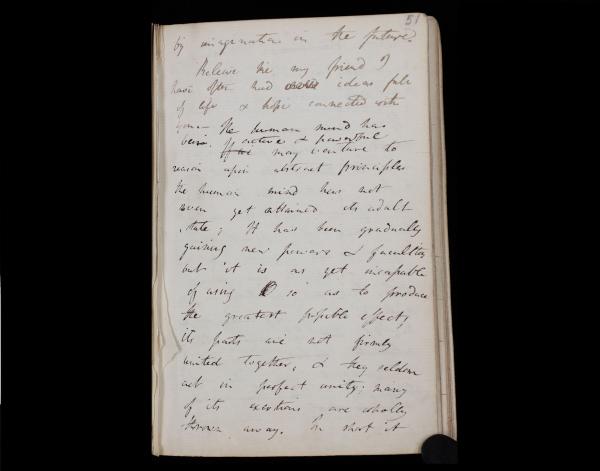 51
by imagination in the future.
Believe me my friend I
have often had ideas full
of life & hope connected with
you— The human mind has
been active & powerful
If we may venture to
reason upon abstract principles
the human mind has not
even yet attained its adult
state; It has been gradually
gaining new powers & faculties
but it is as yet incapable
of using so as to produce
the greatest possible effects,
its parts are not firmly
united together, & they seldom
act in perfect unity; many
of its exertions are wholly
thrown away. In short it